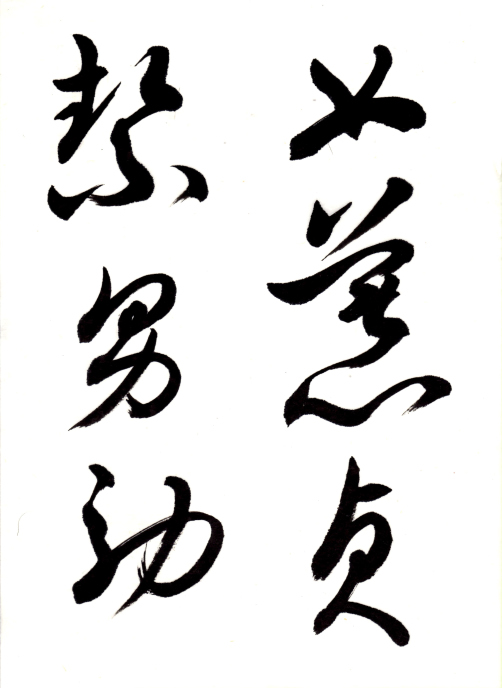 女慕貞
絜男効